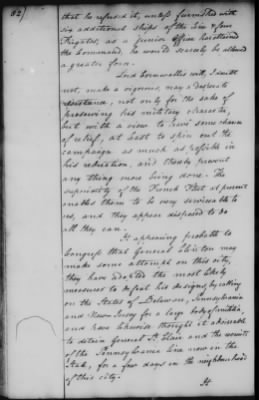 82/
that he refused it, unless furnished with
six additional ships of the Line & four
Frigates, as a junior officer has attained
the Command, he would scarcely be allowed
a greater force.
Lord Cornwallis will, I doubt
not, make a vigorous, nay a desperate
resistance, not only for the sake of
preserving his military character,
but with a view to have some chance
of relief, at least to spin out the
campaign as much as possible in
his reduction, and thereby prevent
any thing more being done. The
superiority of the French Fleet at present
enables them to be very serviceable to
us, and they appear disposed to do
all they can.
It appearing probable to
Congress that General Clinton may
make some attempt on this city,
they have adopted the most likely
measures to defeat his designs by calling
on the States of Delaware, Pennsylvania
and New Jersey for a large body of militia,
and have likewise thought it adviseable
to detain General St. Clair and the recruits
of the Pennsylvania Line now in the
State, for a few days in the neighbourhood
of this city.
It